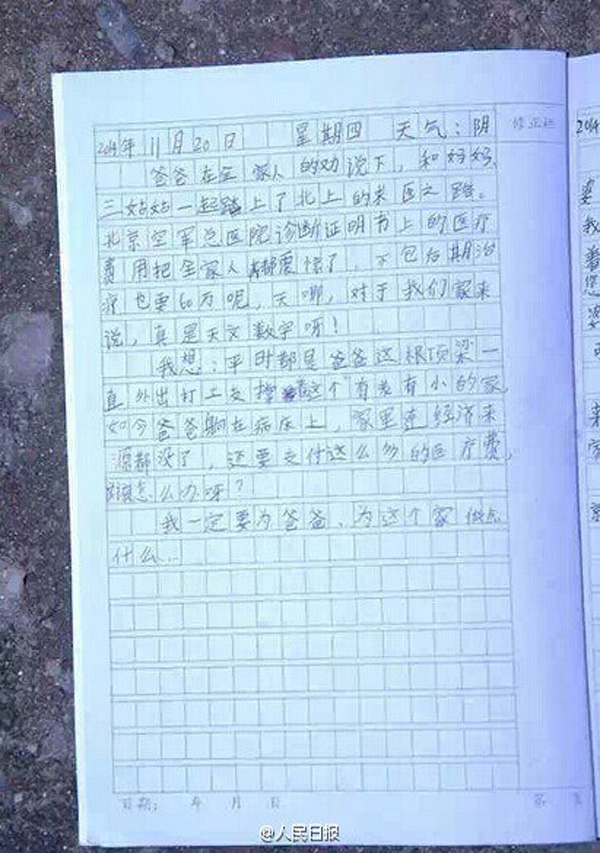 2014年 11月 20日 星期四 天气:阴
爸爸在全家人的劝说下,和妈妈、
三姑姑一起踏上了北上的求医之路。
北京空军总医院诊断证明书上的医疗
费用把全家人都震惊了,不包后期治
疗也要60万呢,天哪,对于我们家来
说,真是天文数字呀!
我想:平时都是爸爸这根顶梁一
直外出打工支撑着这个有老有小的家,
如今爸爸躺在病床上,家里连经济来
源都没了,还要支付这么多的医疗费,
该怎么办呀?
我一定要为爸爸、为这个家做点
什么…
日期: 年 月 日
第 页
修正栏
2014
要
我
着
您
@人民日报